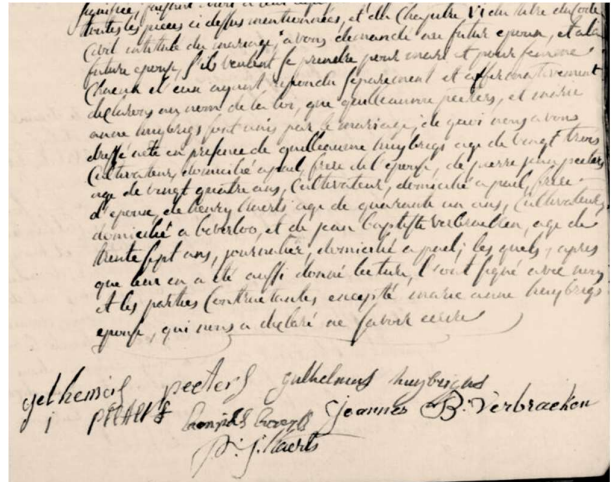 toutes les pièces ci dessus mentionnées, et du Chapitre VI du titre du Code
Civil intitulé du mariage, avons demandé au futur epoux, et a la
future epouse, s'ils veulent se prendre pour mari et pour femme
Chacun d'eux ayant repondu séparement et affirmativement
declarons au nom de la loi, que guilleaume peeters, et marie
anne huybrigs sont unis par le mariage, de quoi nous avons
dressé acte en présence de guilleaume huybrigs age de vingt trois
Cultivateur, domicilié a paul, frère de l'epouse, de pierre jean peeters
age de vingt quatre ans, Cultivateur, domicilié a paul, frère
d'epoux, de henry haerts age de quarante un ans, Cultivateur,
domicilié a beverloo, et de jean baptiste verbraeken, age de
trente sept ans, journalier, domicilié a paul; les quels, apres
que leur en a été aussi donné lecture, l'ont signé avec nous
et les parties Contractantes excepté marie anne huybrigs
epouse, qui nous a declaré ne savoir ecrire
gelhemis peeters guilhelmus huybrighs
Joannes B. Verbraeken